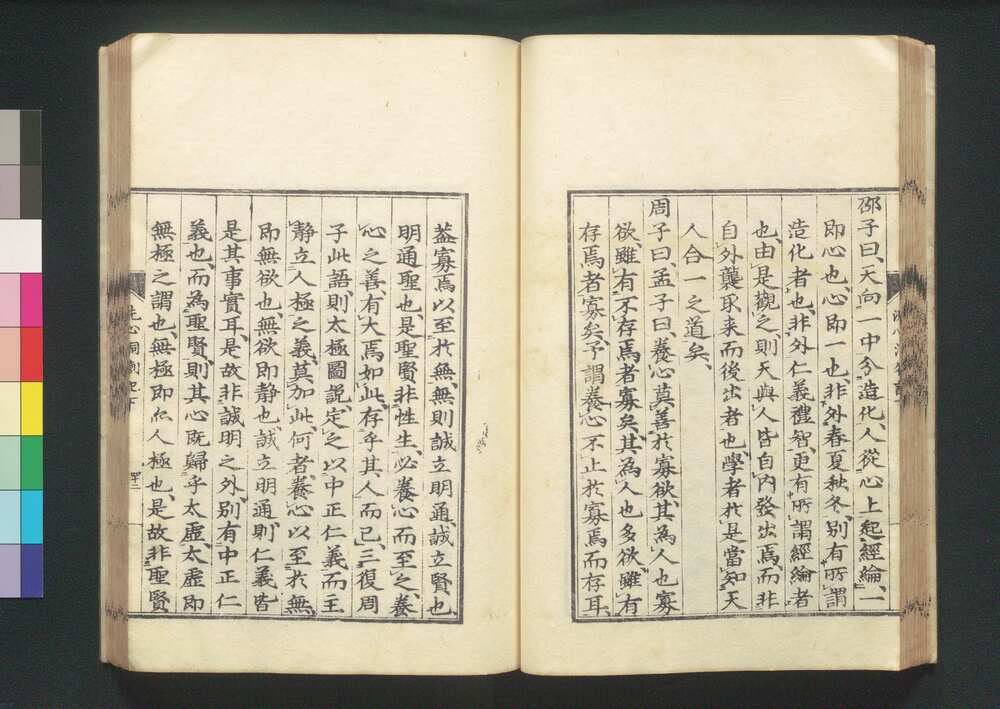 邵子曰、天向一中分造化、人從心上起經綸、一
即心也、心即一也、非外春夏秋冬、別有所謂
造化者也、非外仁義禮智、更有所謂經綸者
也、由是觀之、則天與人皆自內發出焉、而非
自外襲取来而後出者也、學者於是當知天
人合一之道矣、
周子曰、孟子曰、養心莫善於寡欲、其為人也寡
欲、雖有不存焉者寡矣、其為人也多欲、雖有
存焉者寡矣、予謂養心不止於寡焉而存耳、
蓋寡焉以至於無、無則誠立明通、誠立賢也、
明通聖也、是聖賢非性生、必養心而至之、養
心之善有大焉如此、存乎其人而已、三復周
子此語、則太極圖説、定之以中正仁義而主
静、立人極之義、莫加此、何者、養心以至於無、
即無欲也、無欲即静也、誠立明通、則仁義皆
是其事實耳、是故非誠明之外、別有中正仁
義也、而為聖賢、則其心既歸乎太虛、太虛即
無極之謂也、無極即人極也、是故非聖賢
洗心洞劄記下